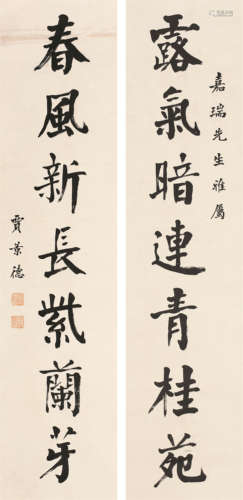 嘉瑞先生雅屬
露氣暗連青桂苑
春風新長紫蘭芽
賈景德